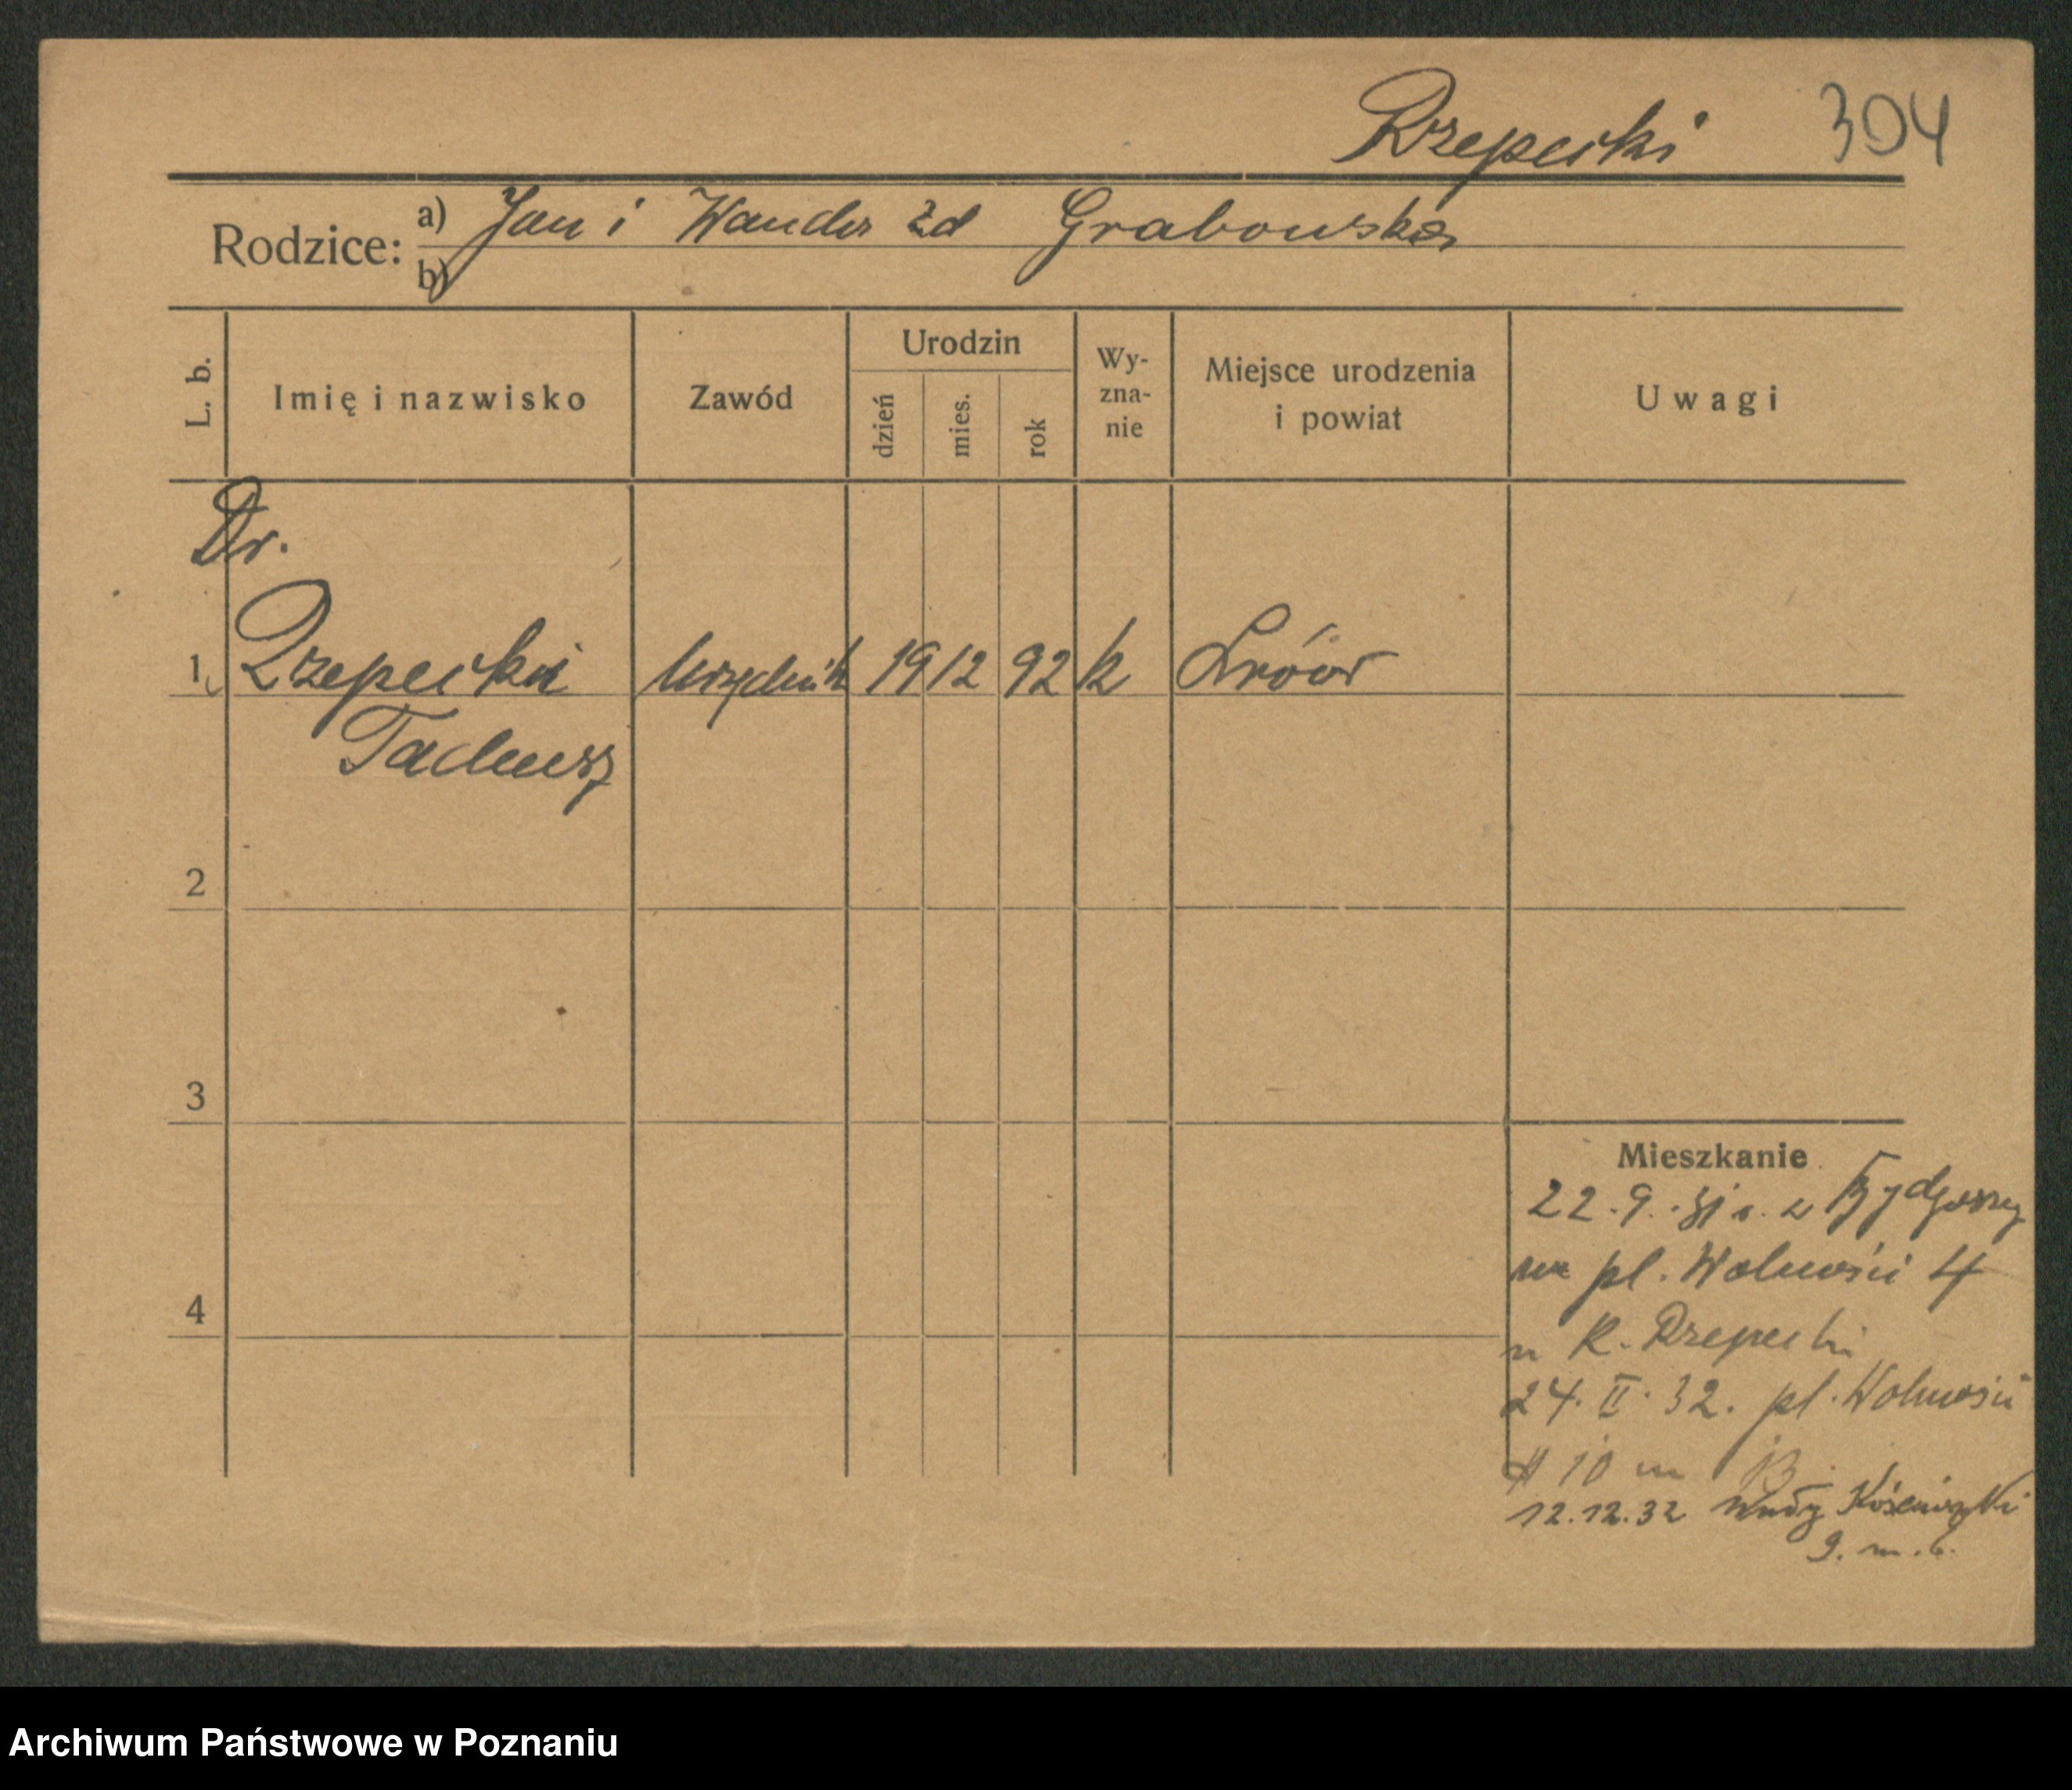 Rzepecki 304
Rodzice: a) Jan i Wanda zd Grabowska
b)
L. b. Imię i nazwisko Zawód Urodzin dzień mies. rok Wyznanie Miejsce urodzenia i powiat Uwagi
Dr.
1. Rzepecki urzędnik 19 12 92 k Lwów
Tadeusz
2
3
Mieszkanie
22.9.31 r. z Bydgoszczy
na pl. Wolności 4
4
u R. Rzepecki
24. II. 32. pl. Wolności
10 m 13
12.12.32 Wały Kościuszki
9. m. 6.
Archiwum Państwowe w Poznaniu